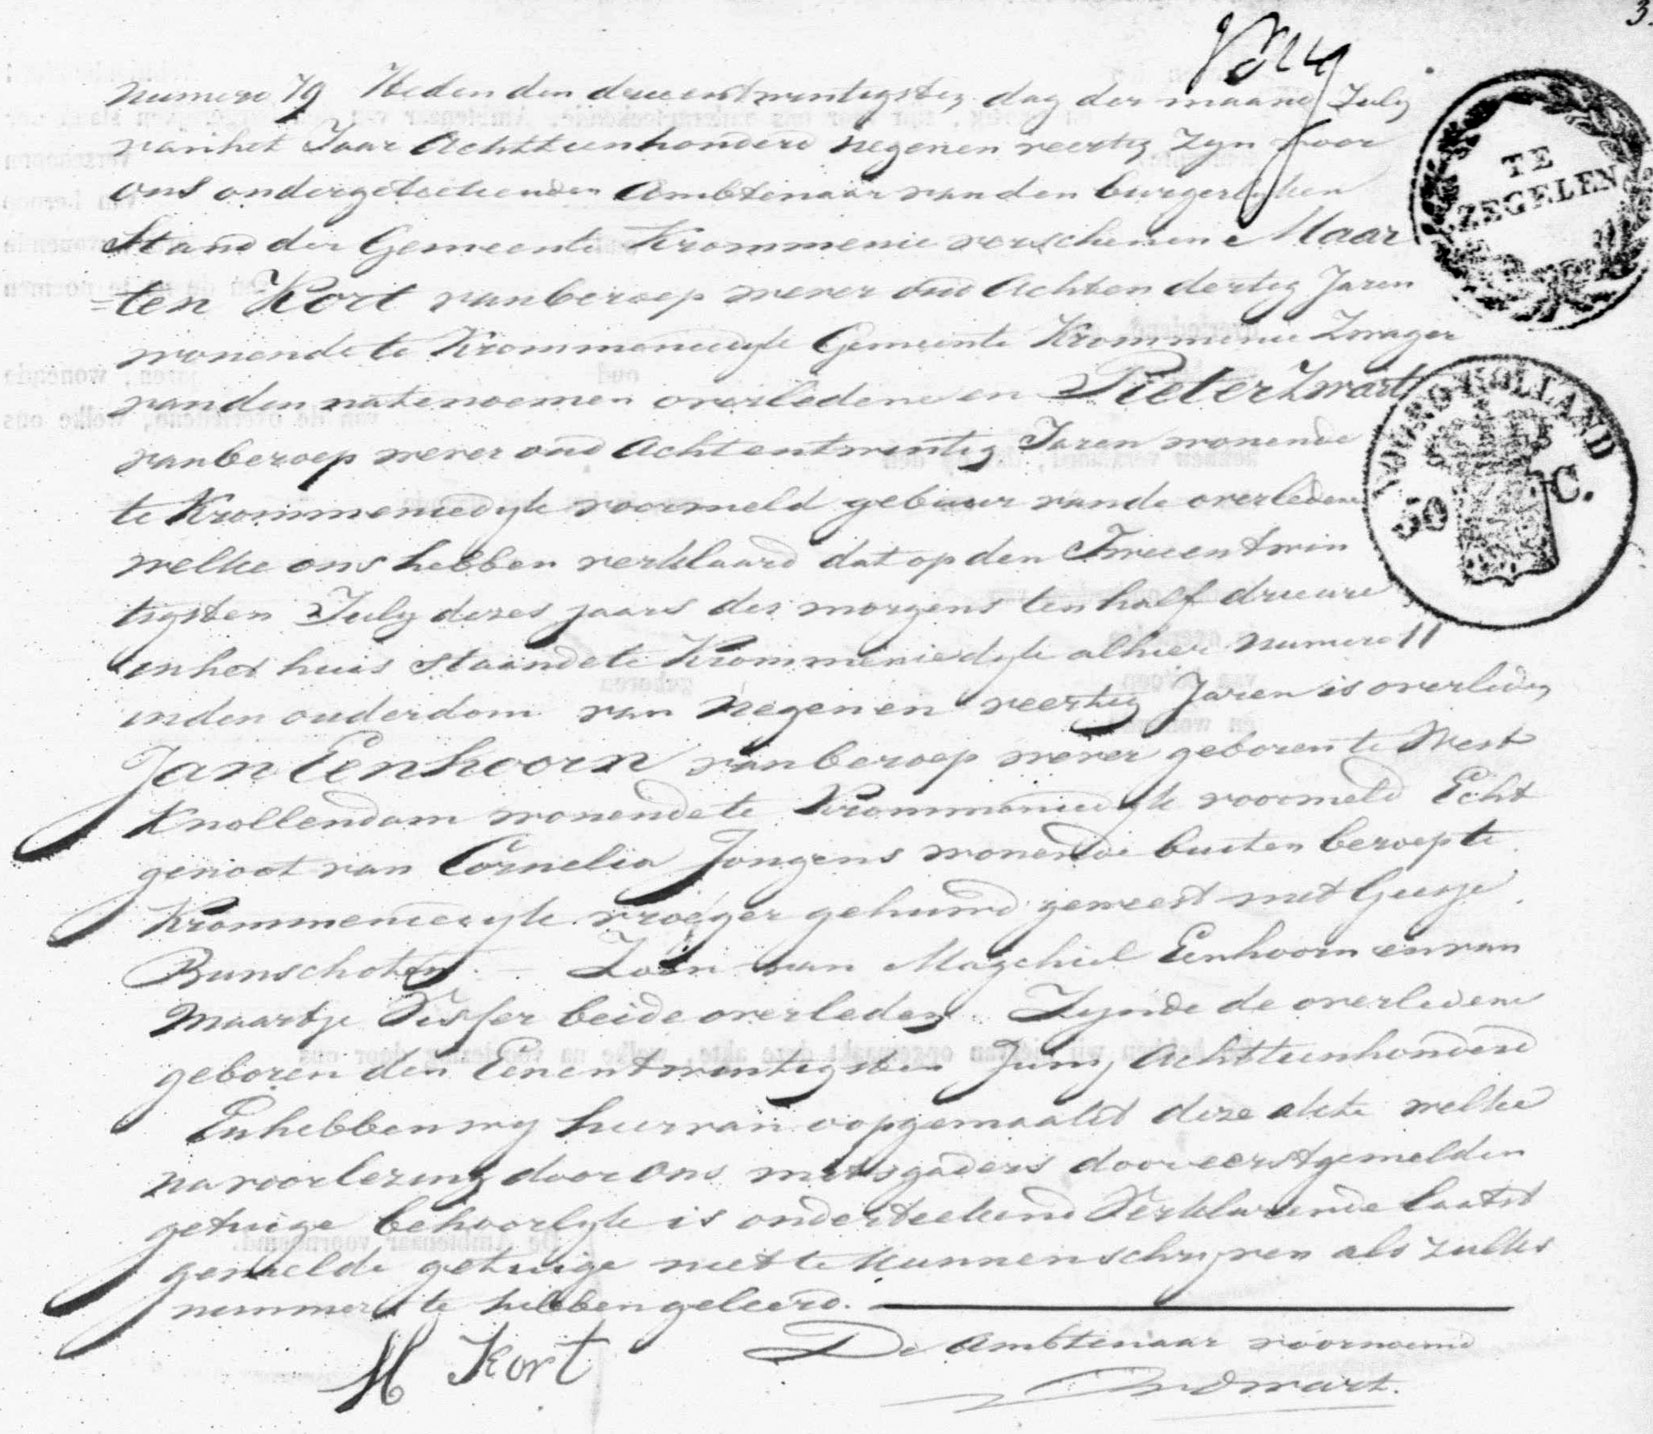 Numero 79 Heden den drieentwintigsten dag der maand July
van het Jaar Achttienhonderd negenen veertig zyn voor
ons ondergeteekenden Ambtenaar van den burgerlyken
Stand der Gemeente Krommenie verschenen Maar
=ten Kort van beroep wever oud Achten dertig Jaren
wonende te Krommeniedyk Gemeente Krommenie Zwager
van den natenoemen overledene en Pieter Zwart
van beroep wever oud Achtentwintig Jaren wonende
te Krommeniedyk voormeld gebuur van de overledene
welke ons hebben verklaard dat op den Tweeentwin
tigsten July dezes jaars des morgens ten half drie ure
in het huis staande te Krommeniedyk alhier Numero 11
in den ouderdom van Negenen veertig Jaren is overleden
Jan Eenhoorn van beroep wever geboren te West
Knollendam wonende te Krommeniedyk voormeld Echt
genoot van Cornelia Jongens wonende buiten beroep te
Krommeniedyk vroeger gehuwd geweest met Geesje
Bunschoten. Zoon van Magchiel Eenhoorn en van
Maartje Visser beide overleden. Zynde de overledene
geboren den Eenentwintigsten Juny Achttienhonderd
En hebben wy hiervan opgemaakt deze akte welke
na voorlezing door ons mitsgaders door eerstgemelden
getuige behoorlyk is onderteekend Verklarende laatst
gemelde getuige niet te kunnen schryven als zulks
nimmer te hebben geleerd.
De Ambtenaar voornoemd
M Kort
TE
ZEGELEN
NOORD HOLLAND
50 C.